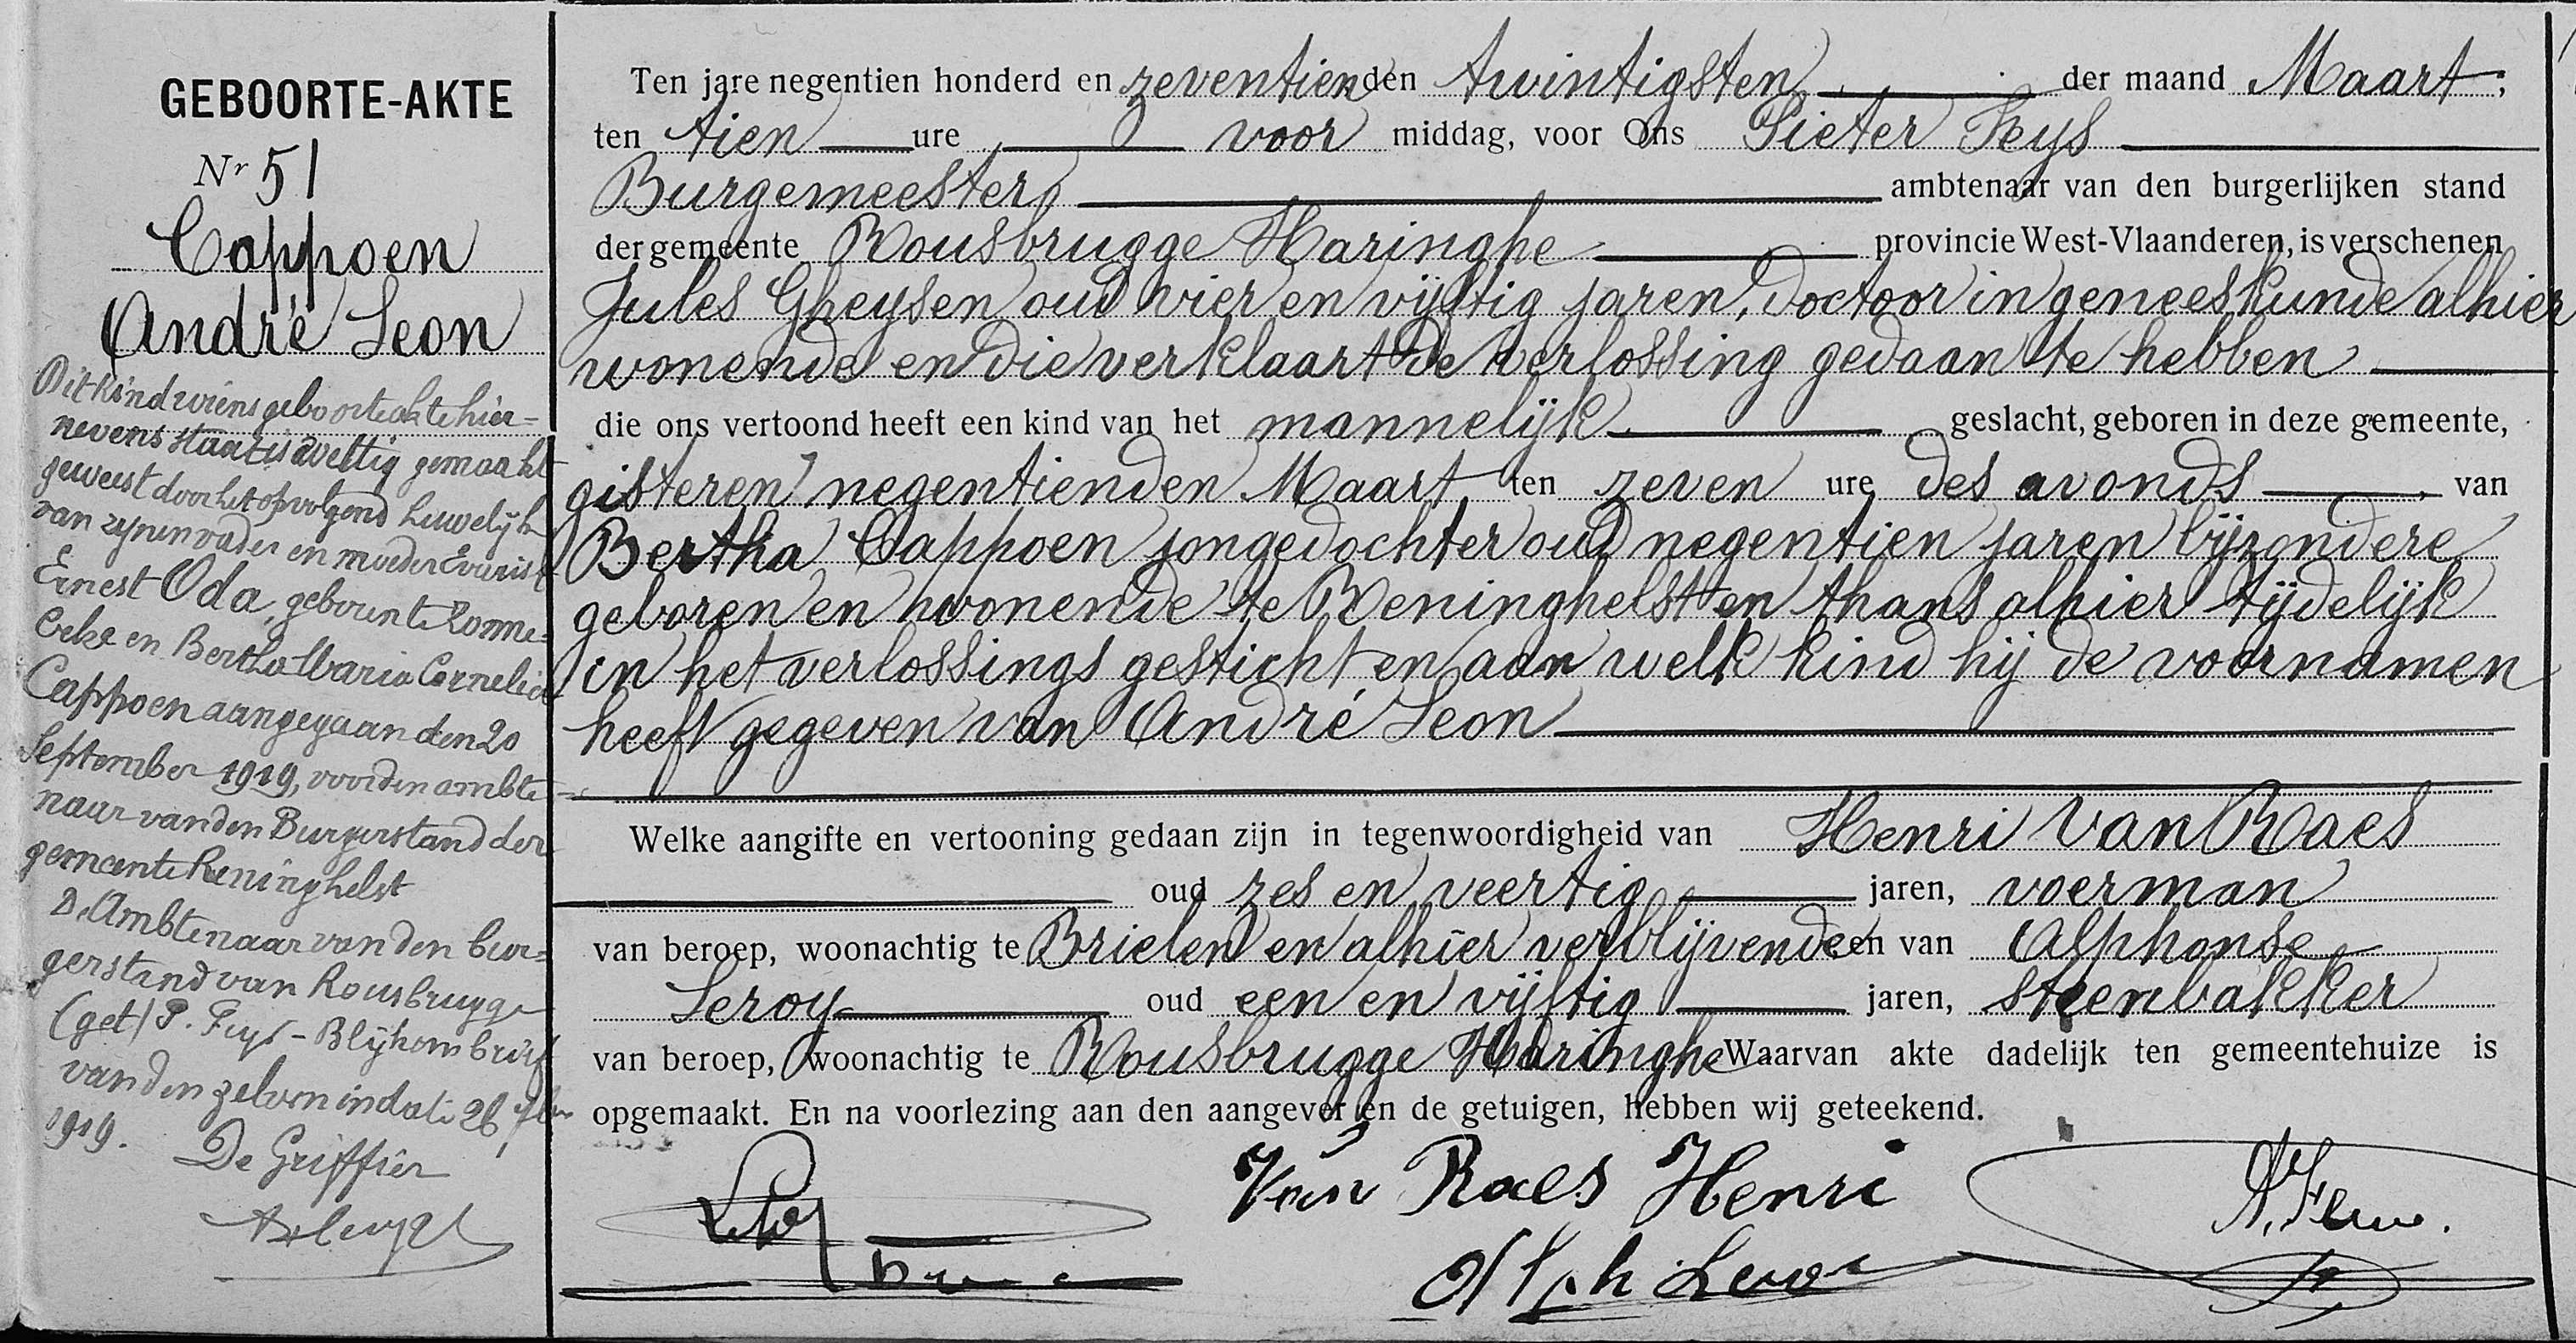 GEBOORTE-AKTE
Nr 51
Cappoen
André Leon
Dit kind wiens geboorteakte hier=
nevens staat is wettig gemaakt
geweest door het opvolgend huwelijk
van zynen vader en moeder Evarist
Ernest Oda, geboren te Lomme=
en Bertha Maria Cornelia
Cappoen aangegaan den 20
September 1919, voor den ambte=
naar van den Burgerstand der
gemeente Reninghelst
De Ambtenaar van den bur=
gerstand van Rousbrugge
(get) P. Feys - Blijkens brief
van den zelven in dato 26 7ber
1919.
De Griffier
Ten jare negentien honderd en zeventien den twintigsten der maand Maart;
ten tien ure voor middag, voor Ons Pieter Feys
Burgemeester ambtenaar van den burgerlijken stand
der gemeente Rousbrugge Haringhe provincie West-Vlaanderen, is verschenen
Jules Gheysen oud vier en vijftig jaren, doctoor in geneeskunde alhier
wonende en die verklaart de verlossing gedaan te hebben
die ons vertoond heeft een kind van het mannelijk geslacht, geboren in deze gemeente,
gisteren negentienden Maart, ten zeven ure des avonds van
Bertha Cappoen jongedochter oud negentien jaren bijzondere
geboren en wonende te Reninghelst en thans alhier tijdelijk
in het verlossings gesticht, en aan welk kind hij de voornamen
heeft gegeven van André Leon
Welke aangifte en vertooning gedaan zijn in tegenwoordigheid van Henri Van Raes
oud zes en veertig jaren, voerman
van beroep, woonachtig te Brielen en alhier verblijvende en van Alphonse
Leroy oud een en vijftig jaren, steenbakker
van beroep, woonachtig te Rousbrugge Haringhe Waarvan akte dadelijk ten gemeentehuize is
opgemaakt. En na voorlezing aan den aangever en de getuigen, hebben wij geteekend.
Van Raes Henri
Alph Leroy